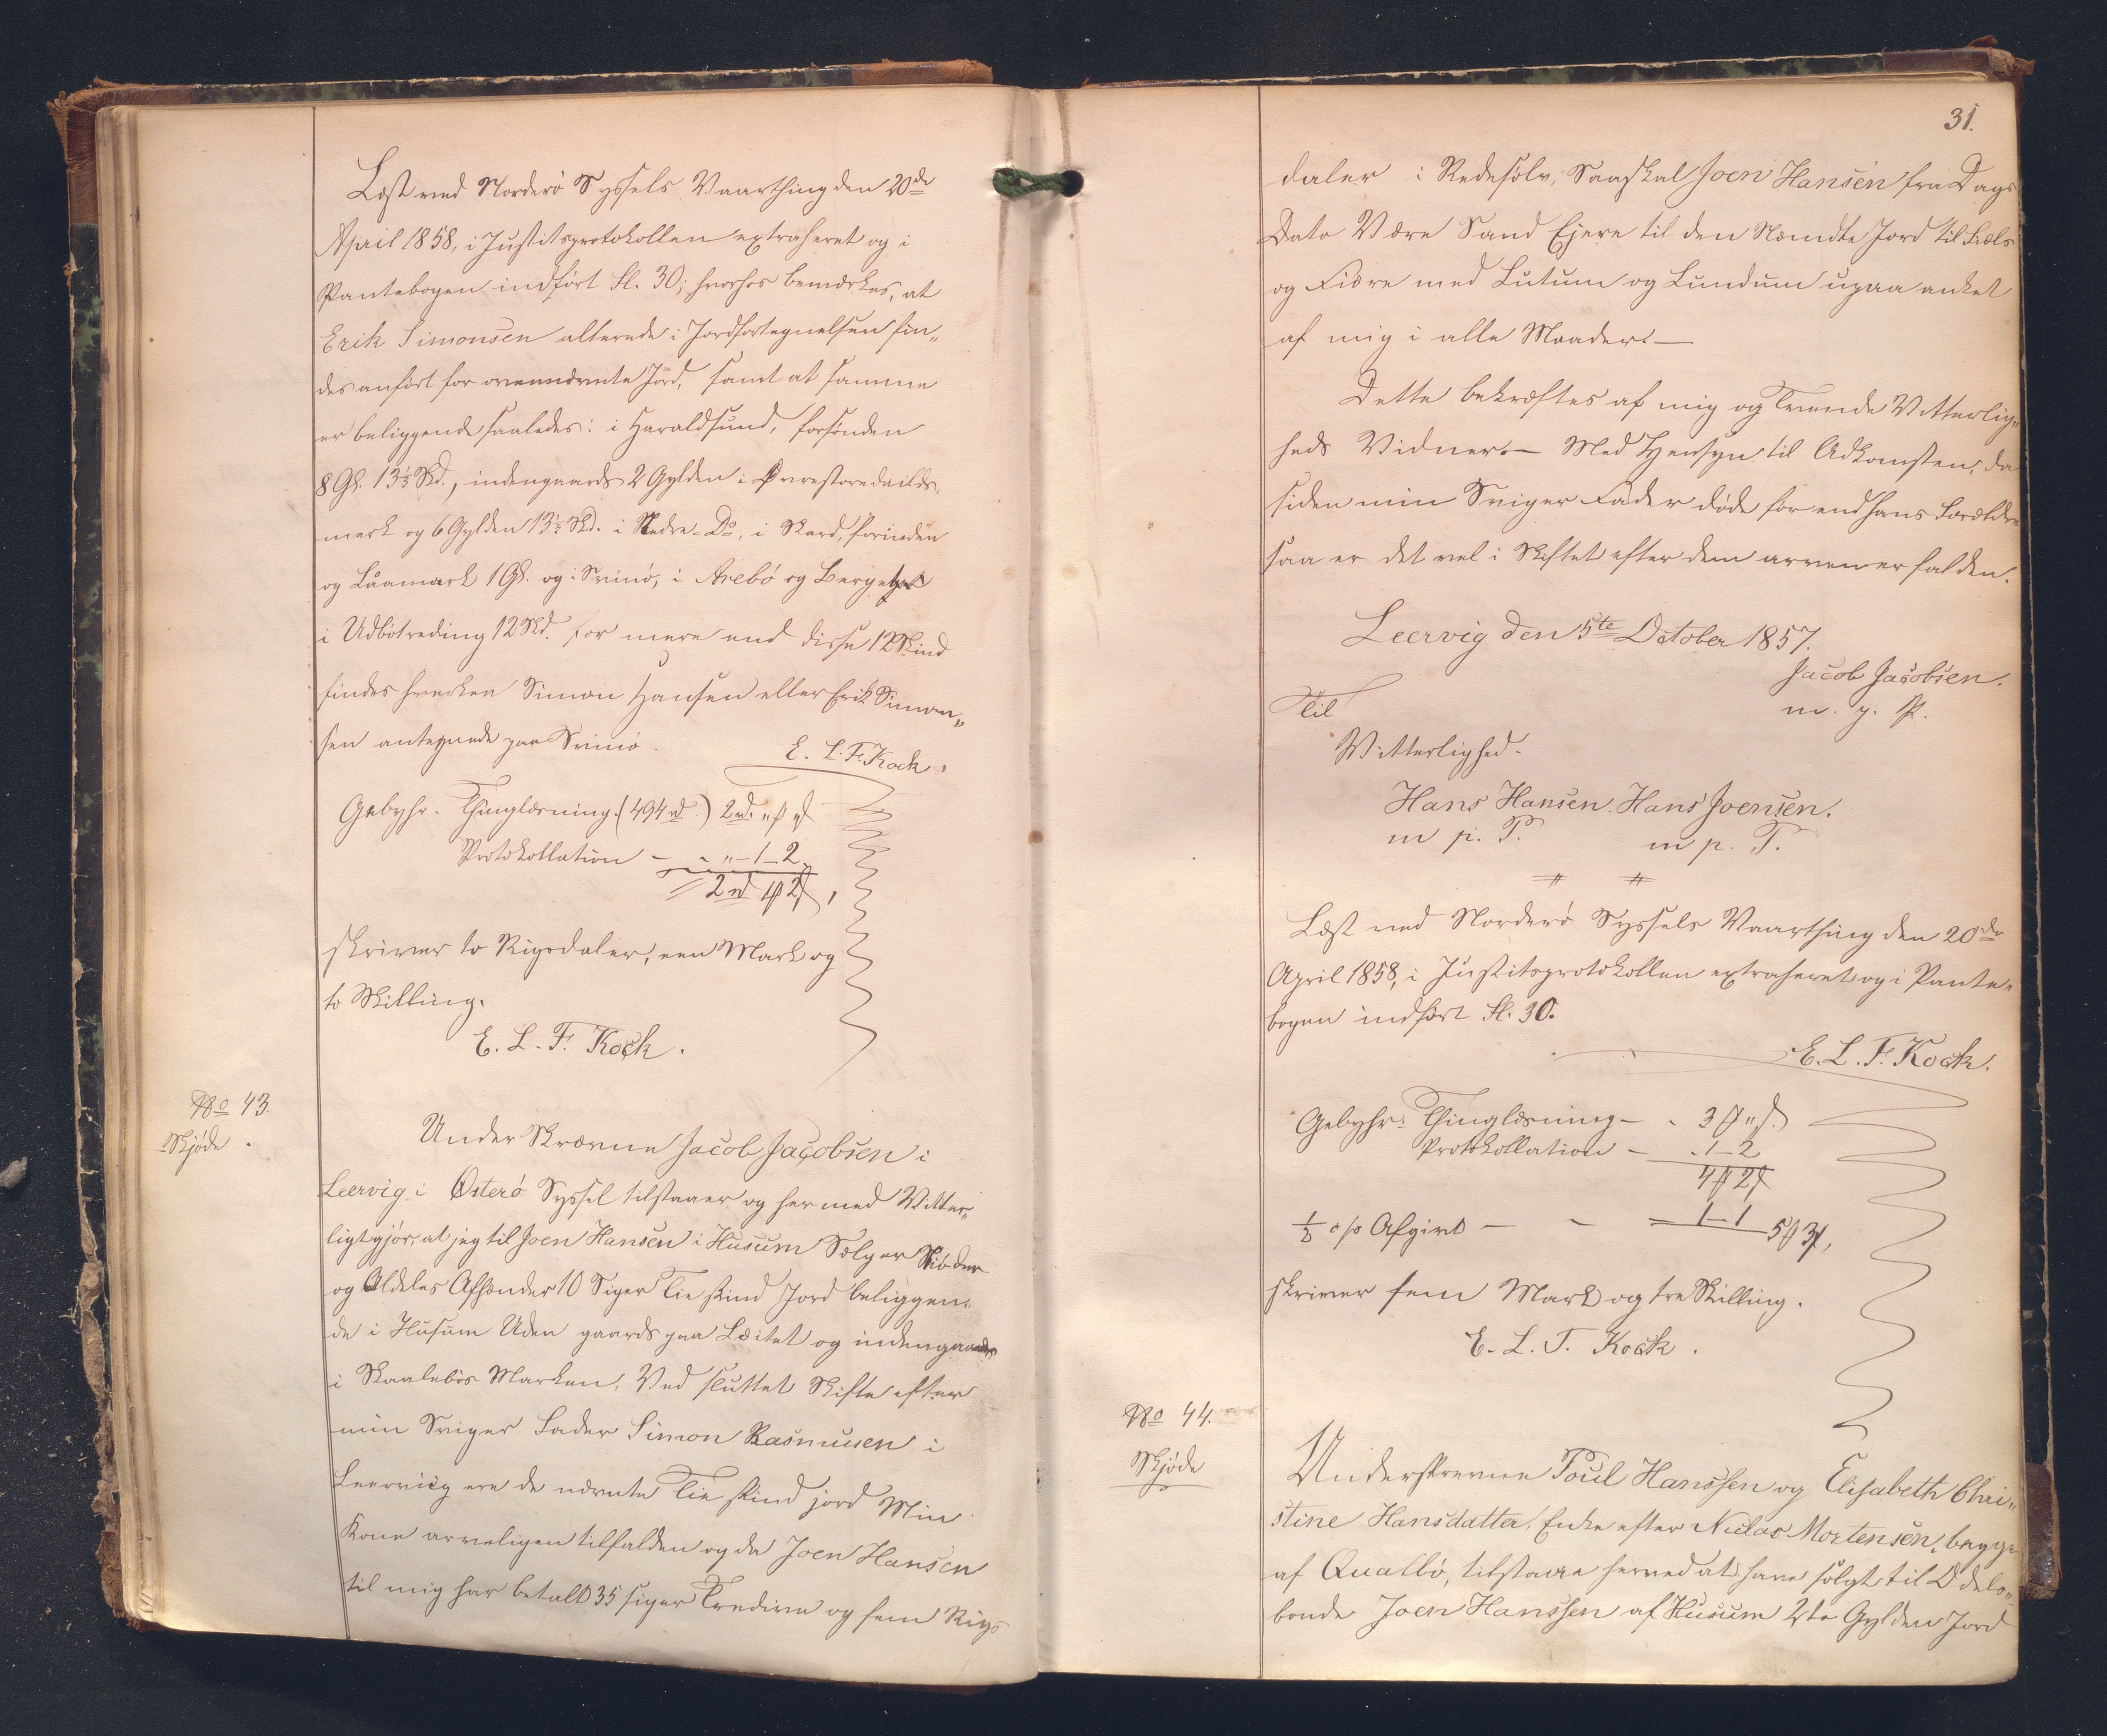 Læst ved Norderø Syssels Vaarthing den 20de
April 1858, i Justitsprotokollen extraheret og i
Pantebogen indført Fl. 30; hvorhos bemærkes, at
Erik Simonsen allerede i Jordfortegnelsen fin„
des anført for ovennævnte Jord, samt at samme
er beliggende saaledes: i Haraldsund, forsønden
8 Gl. 13⅓ Skd., indengaards 2 Gylden i
mark og 6 Gylden 13⅓ Skd. i Nedre-Do, i Skard, forinden
og Låamark 1 Gl. og i Svinø, i Arebø og
i Udbøtreding 12 Skd. for mere end disse 12 Skind
findes hverken Simon Hansen eller Erik Simon„
sen antegnede paa Svinø.
E. L. F. Kock.
Gebyhr. Thinglæsning (494 rd.) 2 rd. „ ß
Protokollation - - „-1-2
2 rd 1 ß 2
skriver to Rigsdaler, een Mark og
to Skilling.
E. L. F. Kock.
No 43.
Skjøde.
Under Skrævne Jacob Jacobsen i
Leervig i Østerø Syssel tilstaaer og hermed Vitter„
ligtgjør, at jeg til Joen Hansen i Husum Sælger Skiøder
og Aldeles Afhænder 10 Siger Tie skind Jord beliggen„
de i Husum Uden gaards paa Læitet og indengaards
i Skaalebøs Marken, Ved sluttet Skifte efter
min Sviger Fader Simon Rasmussen i
Leervig ere de nævnte Tie skind jord Min
Kone arveligen tilfalden og da Joen Hansen
til mig har betalt 35 siger Tredive og fem Rigs
31.
daler i Redesølv, Saa skal Joen Hansen fra Dags
Dato Være Sand Ejere til den Næmdte Jord til Fæls
og Fiære med Lutum og Lundum upaa anket
af mig i alle Maader.—
Dette bekræftes af mig og Trende Vitterlig„
heds Vidner.— Med Hensyn til Adkomsten, da
siden min Sviger Fader døde før end hans Forældre
saa er det vel i Skiftet efter dem arven er falden.
Leervig den 5te October 1857.
Jacob Jacobsen.
m. p. P.
Til
Vitterlighed.
Hans Hansen. Hans Joensen.
m p. P. m p. P.
Læst ved Norderø Syssels Vaarthing den 20de
April 1858, i Justitsprotokollen extraheret og i Pante„
bogen indført Fl. 30.
E. L. F. Kock.
Gebyhr: Thinglæsning - - 3 ß „
Protokollation - - 1-2
4 ß 2
½ o/o Afgivt - - 1-1 5 ß 3,
skriver fem Mark og tre Skilling.
E. L. F. Kock.
No 44.
Skjøde
Underskrevne Poul Hanssen og Elisabeth Chri„
stine Hansdatter, Enke efter Niclas Mortensen, begge
af Qualbø, tilstaae herved at have solgt til Odels„
bonde Joen Hanssen af Husum 2to Gylden Jord